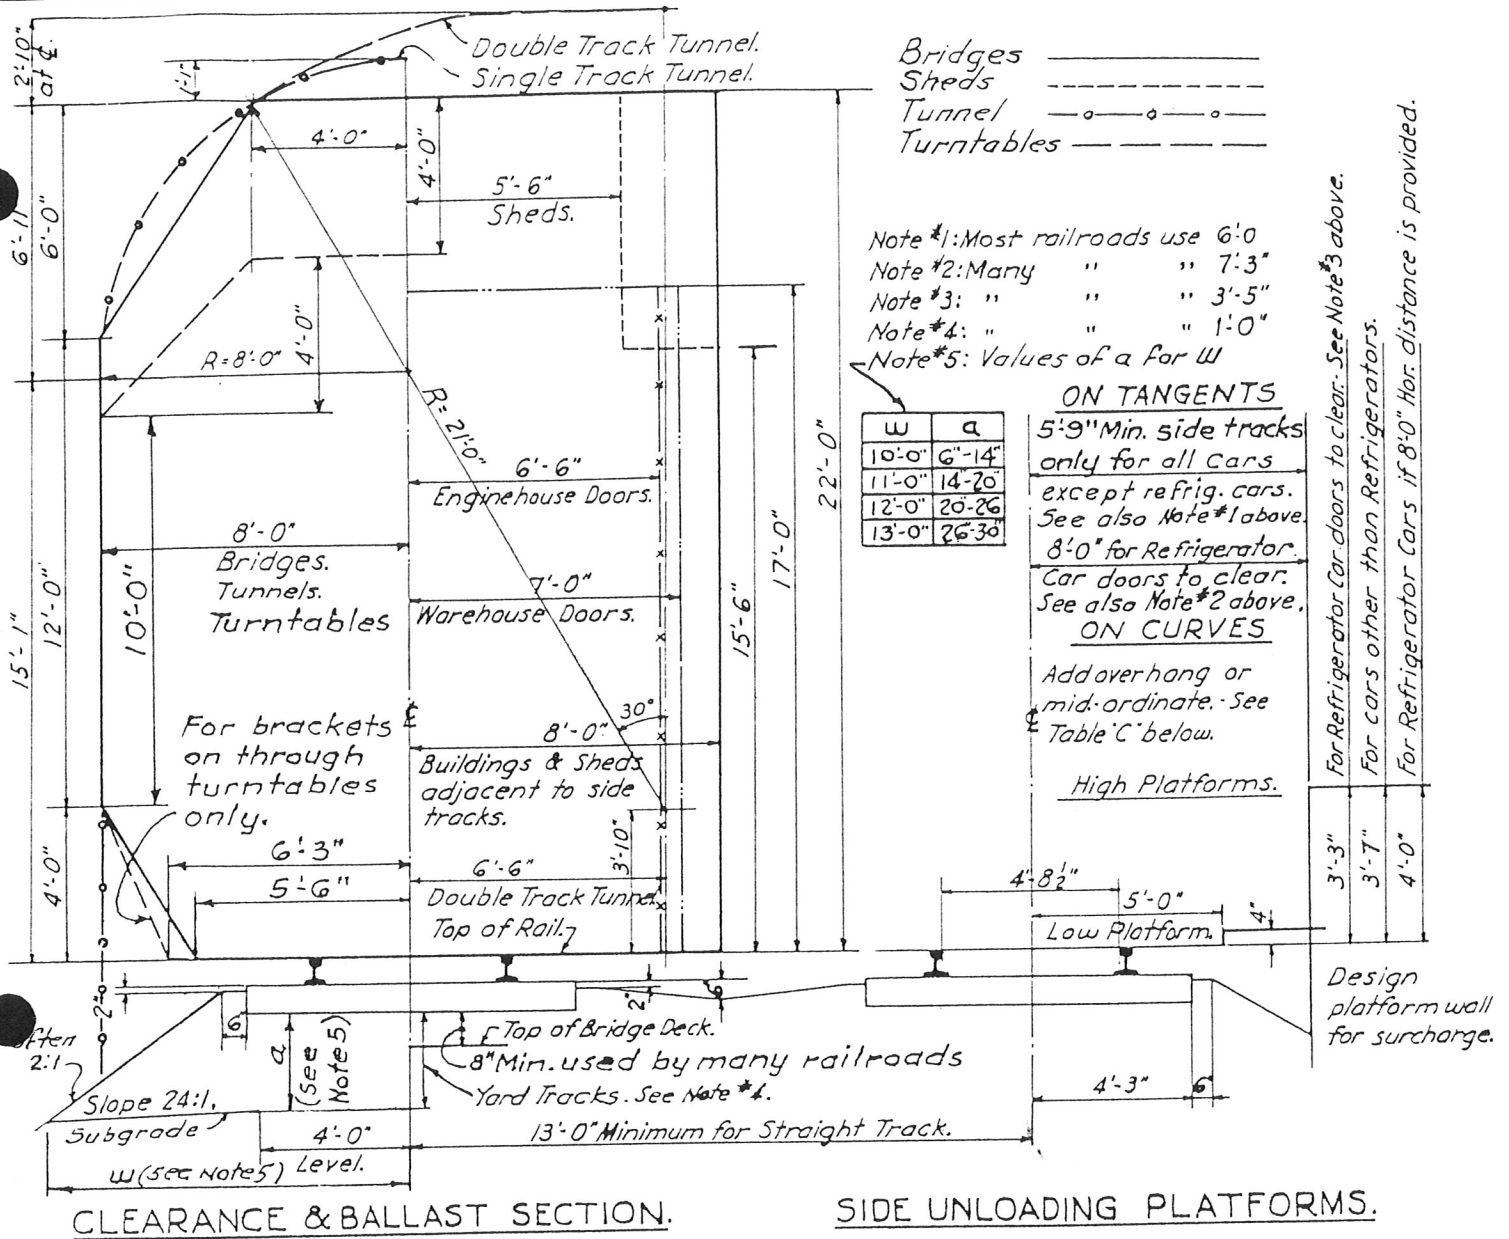 2'-10"
at ℄.
1'-1"
Double Track Tunnel.
Single Track Tunnel.
Bridges
Sheds
Tunnel
Turntables
4'-0"
4'-0"
5'-6"
Sheds.
6'-11"
6'-0"
Note #1: Most railroads use 6'-0
Note #2: Many " " 7'-3"
Note #3: " " " 3'-5"
Note #4: " " " 1'-0"
Note #5: Values of a for W
R=8'-0"
4'-0"
R=21'-0"
W a
10'-0" 6"-14"
11'-0" 14-20"
12'-0" 20-26
13'-0" 26-30"
ON TANGENTS
5'-9" Min. side tracks
only for all Cars
except refrig. cars.
See also Note #1 above.
8'-0" for Refrigerator
Car doors to clear.
See also Note #2 above.
ON CURVES
Add overhang or
mid-ordinate.-See
Table "C" below.
℄
High Platforms.
For Refrigerator Car doors to clear.-See Note #3 above.
For cars other than Refrigerators.
For Refrigerator Cars if 8'-0" Hor. distance is provided.
3'-3"
3'-7"
4'-0"
6'-6"
Enginehouse Doors.
8'-0"
Bridges.
Tunnels.
Turntables
7'-0"
Warehouse Doors.
15'-1"
12'-0"
10'-0"
15'-6"
17'-0"
22'-0"
For brackets
on through
turntables
only.
℄
30°
8'-0"
Buildings & Sheds
adjacent to side
tracks.
4'-0"
6'-3"
5'-6"
6'-6"
Double Track Tunnel
3'-10"
Top of Rail.
4'-8½"
5'-0"
Low Platform.
4"
Design
platform wall
for surcharge.
2"
6"
2"
6"
Often
2:1
a
(See
Note 5)
Top of Bridge Deck.
8" Min. used by many railroads
Yard Tracks. See Note #4.
Slope 24:1.
Subgrade
4'-0"
Level.
13'-0" Minimum for Straight Track.
4'-3"
6"
W (See Note 5)
CLEARANCE & BALLAST SECTION.
SIDE UNLOADING PLATFORMS.